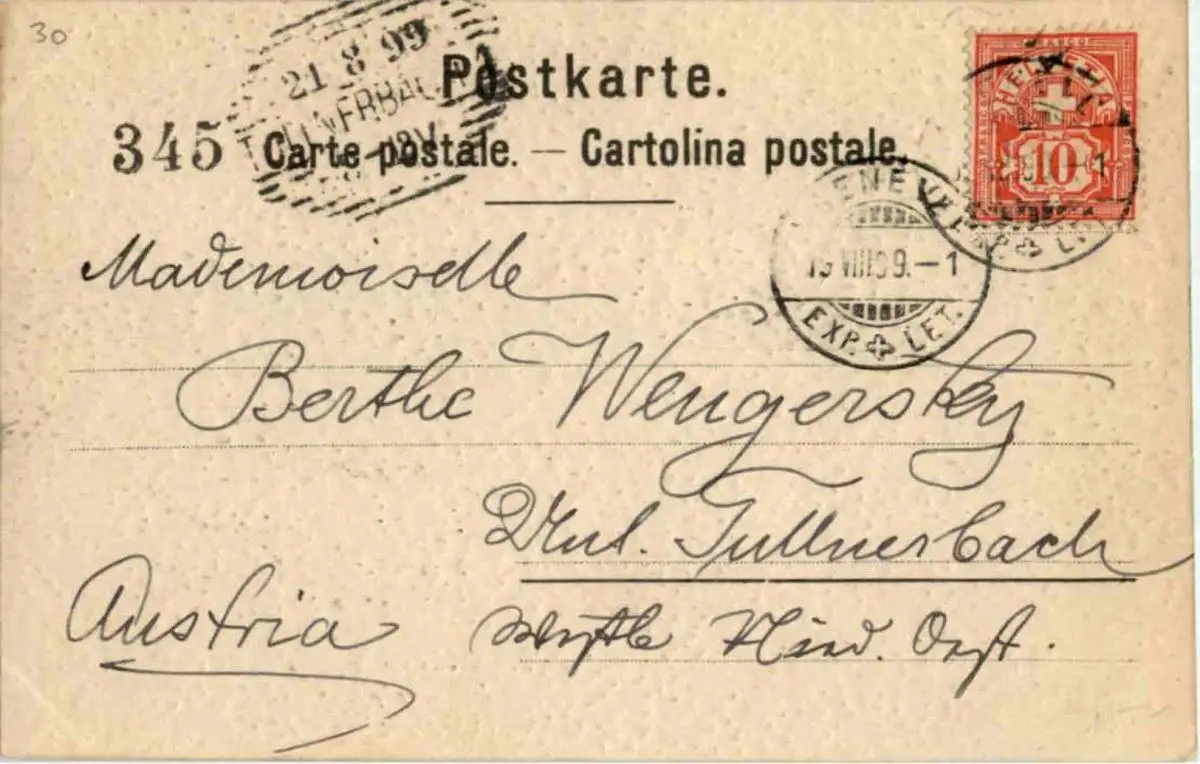 30
21 8 99
LLNERBACH
Postkarte.
345 Carte postale. — Cartolina postale.
HELVETIA
FRANCO
10
GENEVE
19 VIII 99.-1
EXP. LET.
Mademoiselle
Berthe Wengersky
Unt. Tullnerbach
Austria